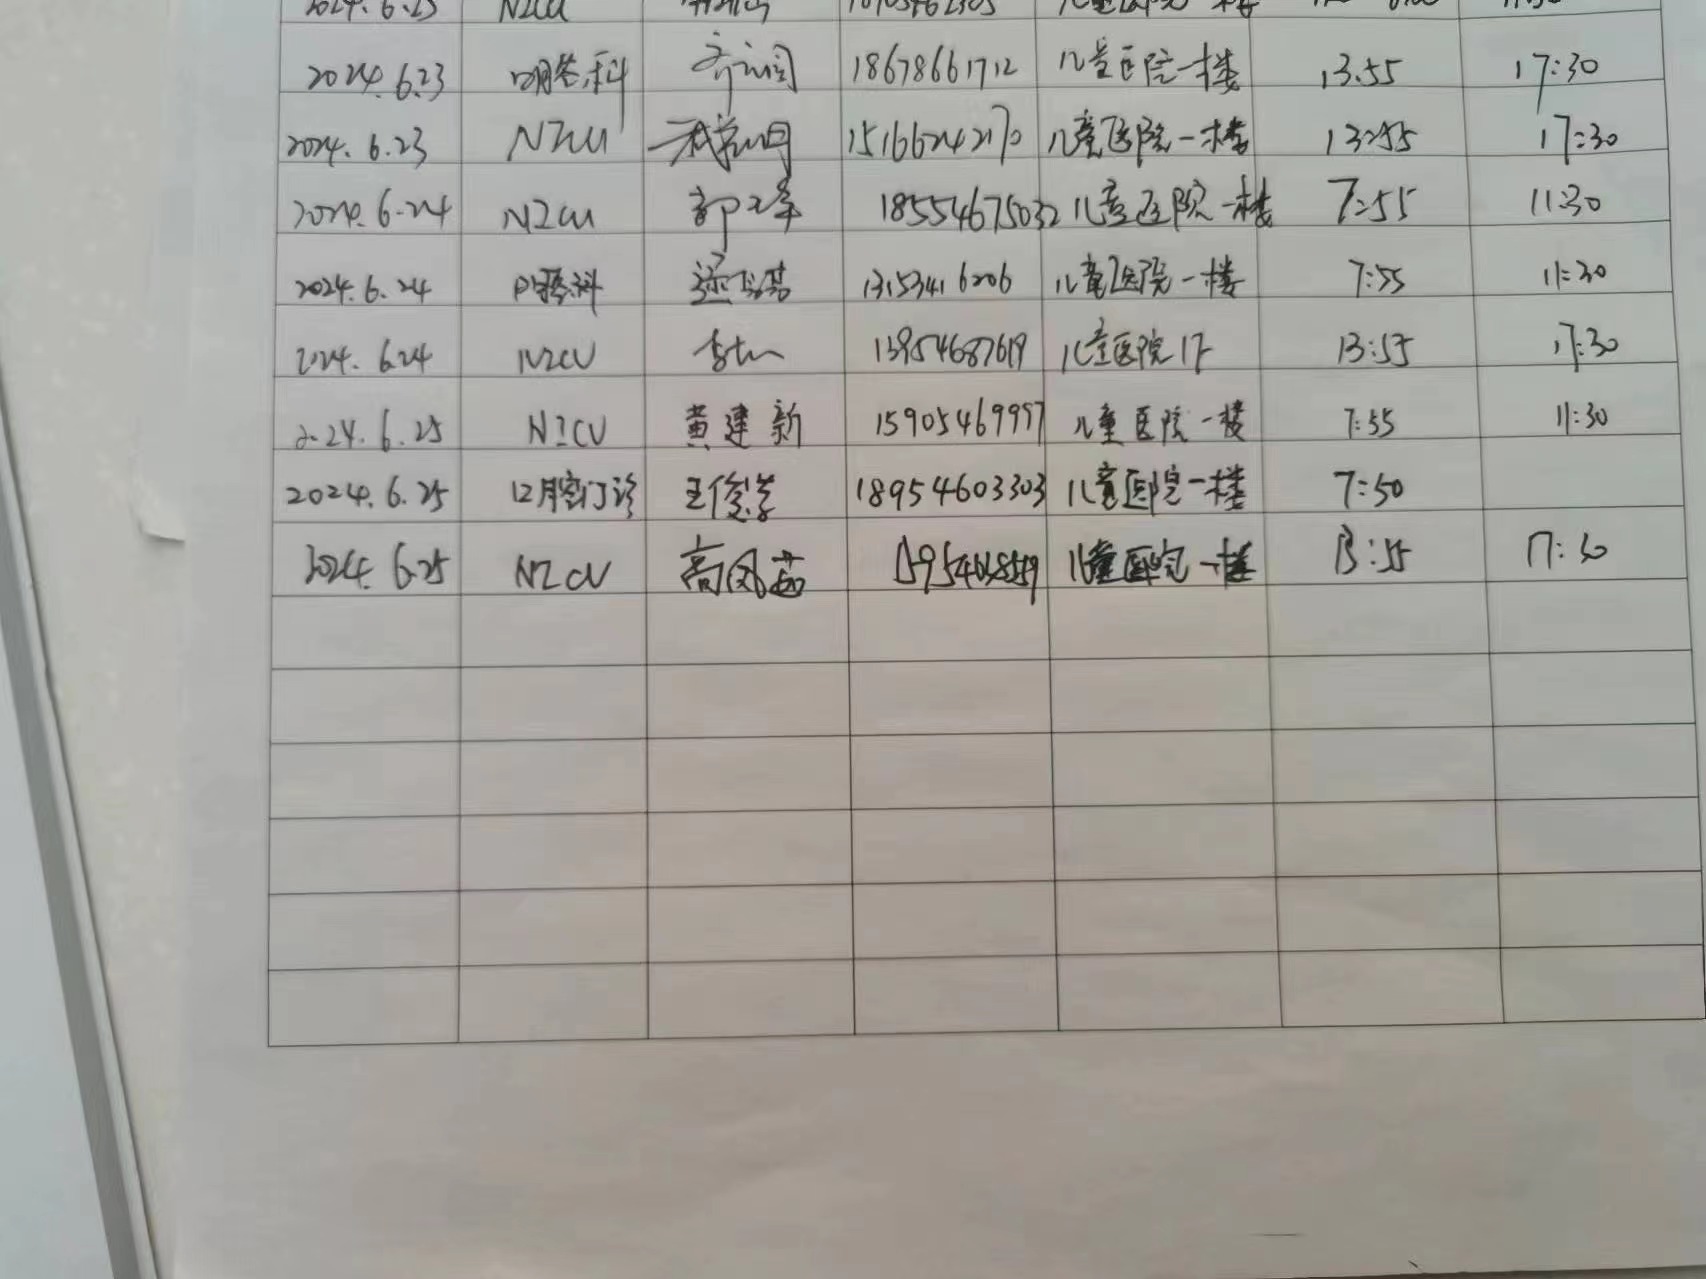 2024.6.23 NZCU
2024.6.23 口腔科 齐 18678661712 儿童医院一楼 13:55 17:30
2024.6.23 NZCU 15166242170 儿童医院一楼 13:55 17:30
2024.6.24 NZCU 郭 18554675032 儿童医院一楼 7:55 11:30
2024.6.24 口腔科 13153416206 儿童医院一楼 7:55 11:30
2024.6.24 NZCU 李 13954687619 儿童医院1F 13:55 17:30
2024.6.25 NICU 黄建新 15905469997 儿童医院一楼 7:55 11:30
2024.6.25 口腔门诊 王俊芳 18954603303 儿童医院一楼 7:50
2024.6.25 NZCU 高凤茹 儿童医院一楼 13:55 17:30